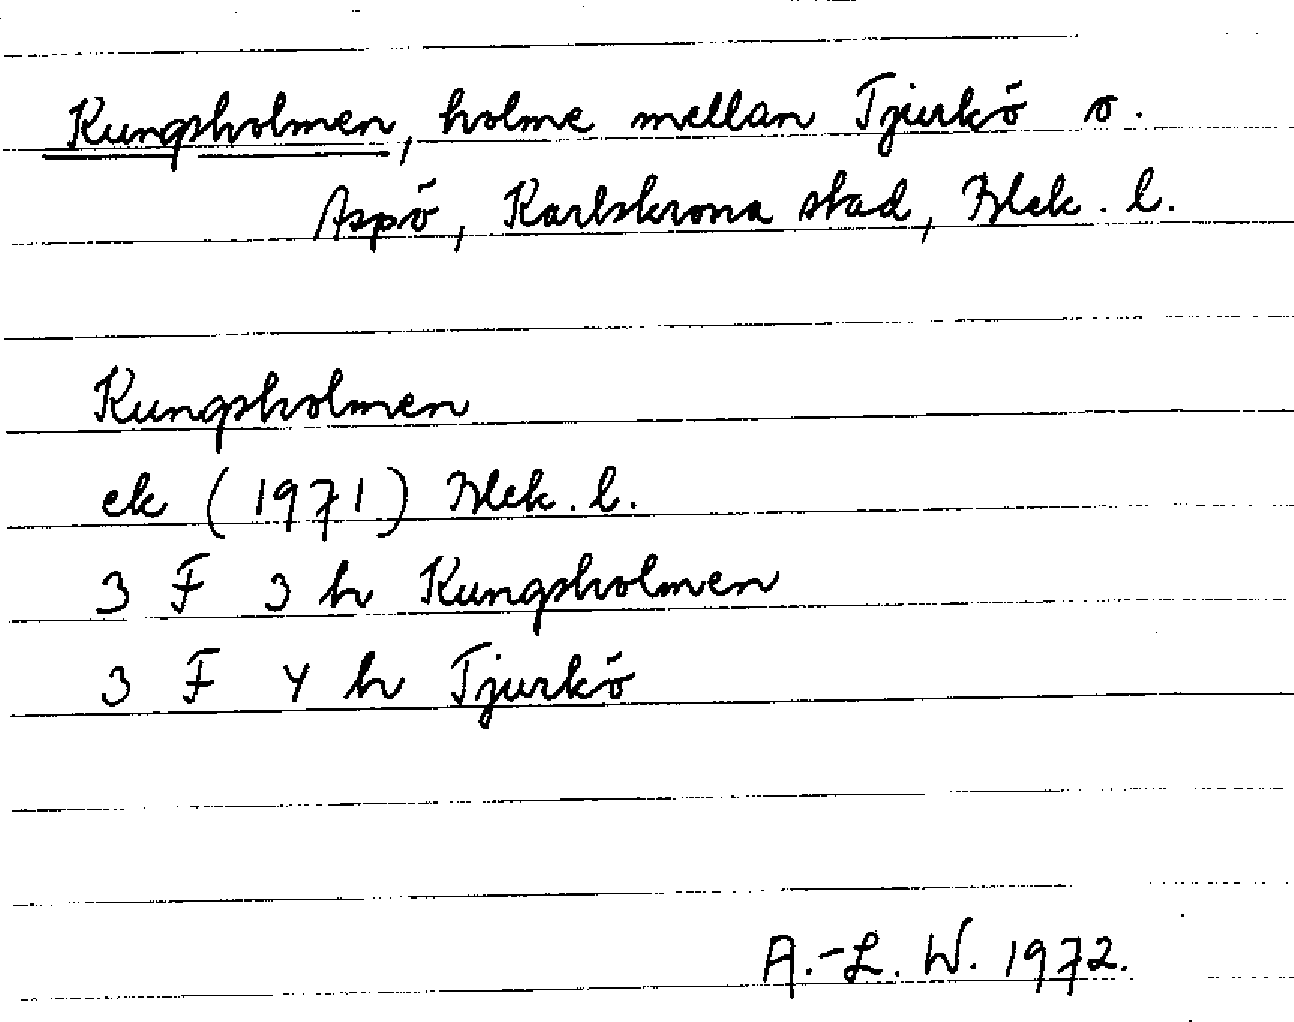 Kungsholmen, holme mellan Tjurkö o.
Aspö, Karlskrona stad, Blek. l.
Kungsholmen
ek (1971) Blek. l.
3 F 3 h Kungsholmen
3 F 4 h Tjurkö
A.-L. W. 1972.